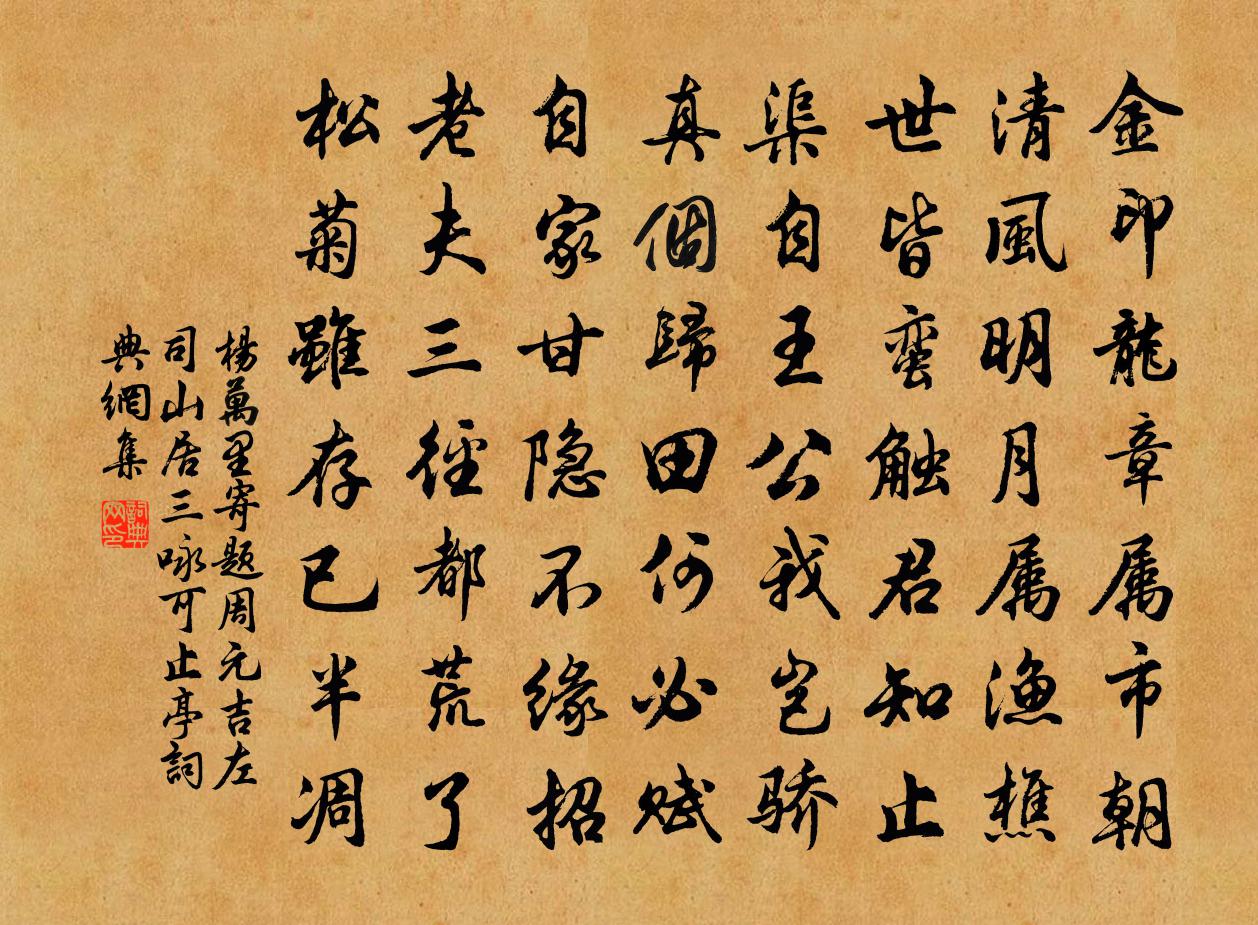 金印龍章属市朝
清風明月属漁樵
世皆蛮触君知止
渠自王公我岂骄
真個歸田何必赋
自家甘隐不缘招
老夫三徑都荒了
松菊雖存已半凋
楊萬里寄题周元吉左
司山居三咏可止亭詞
典網集
詞典
网印